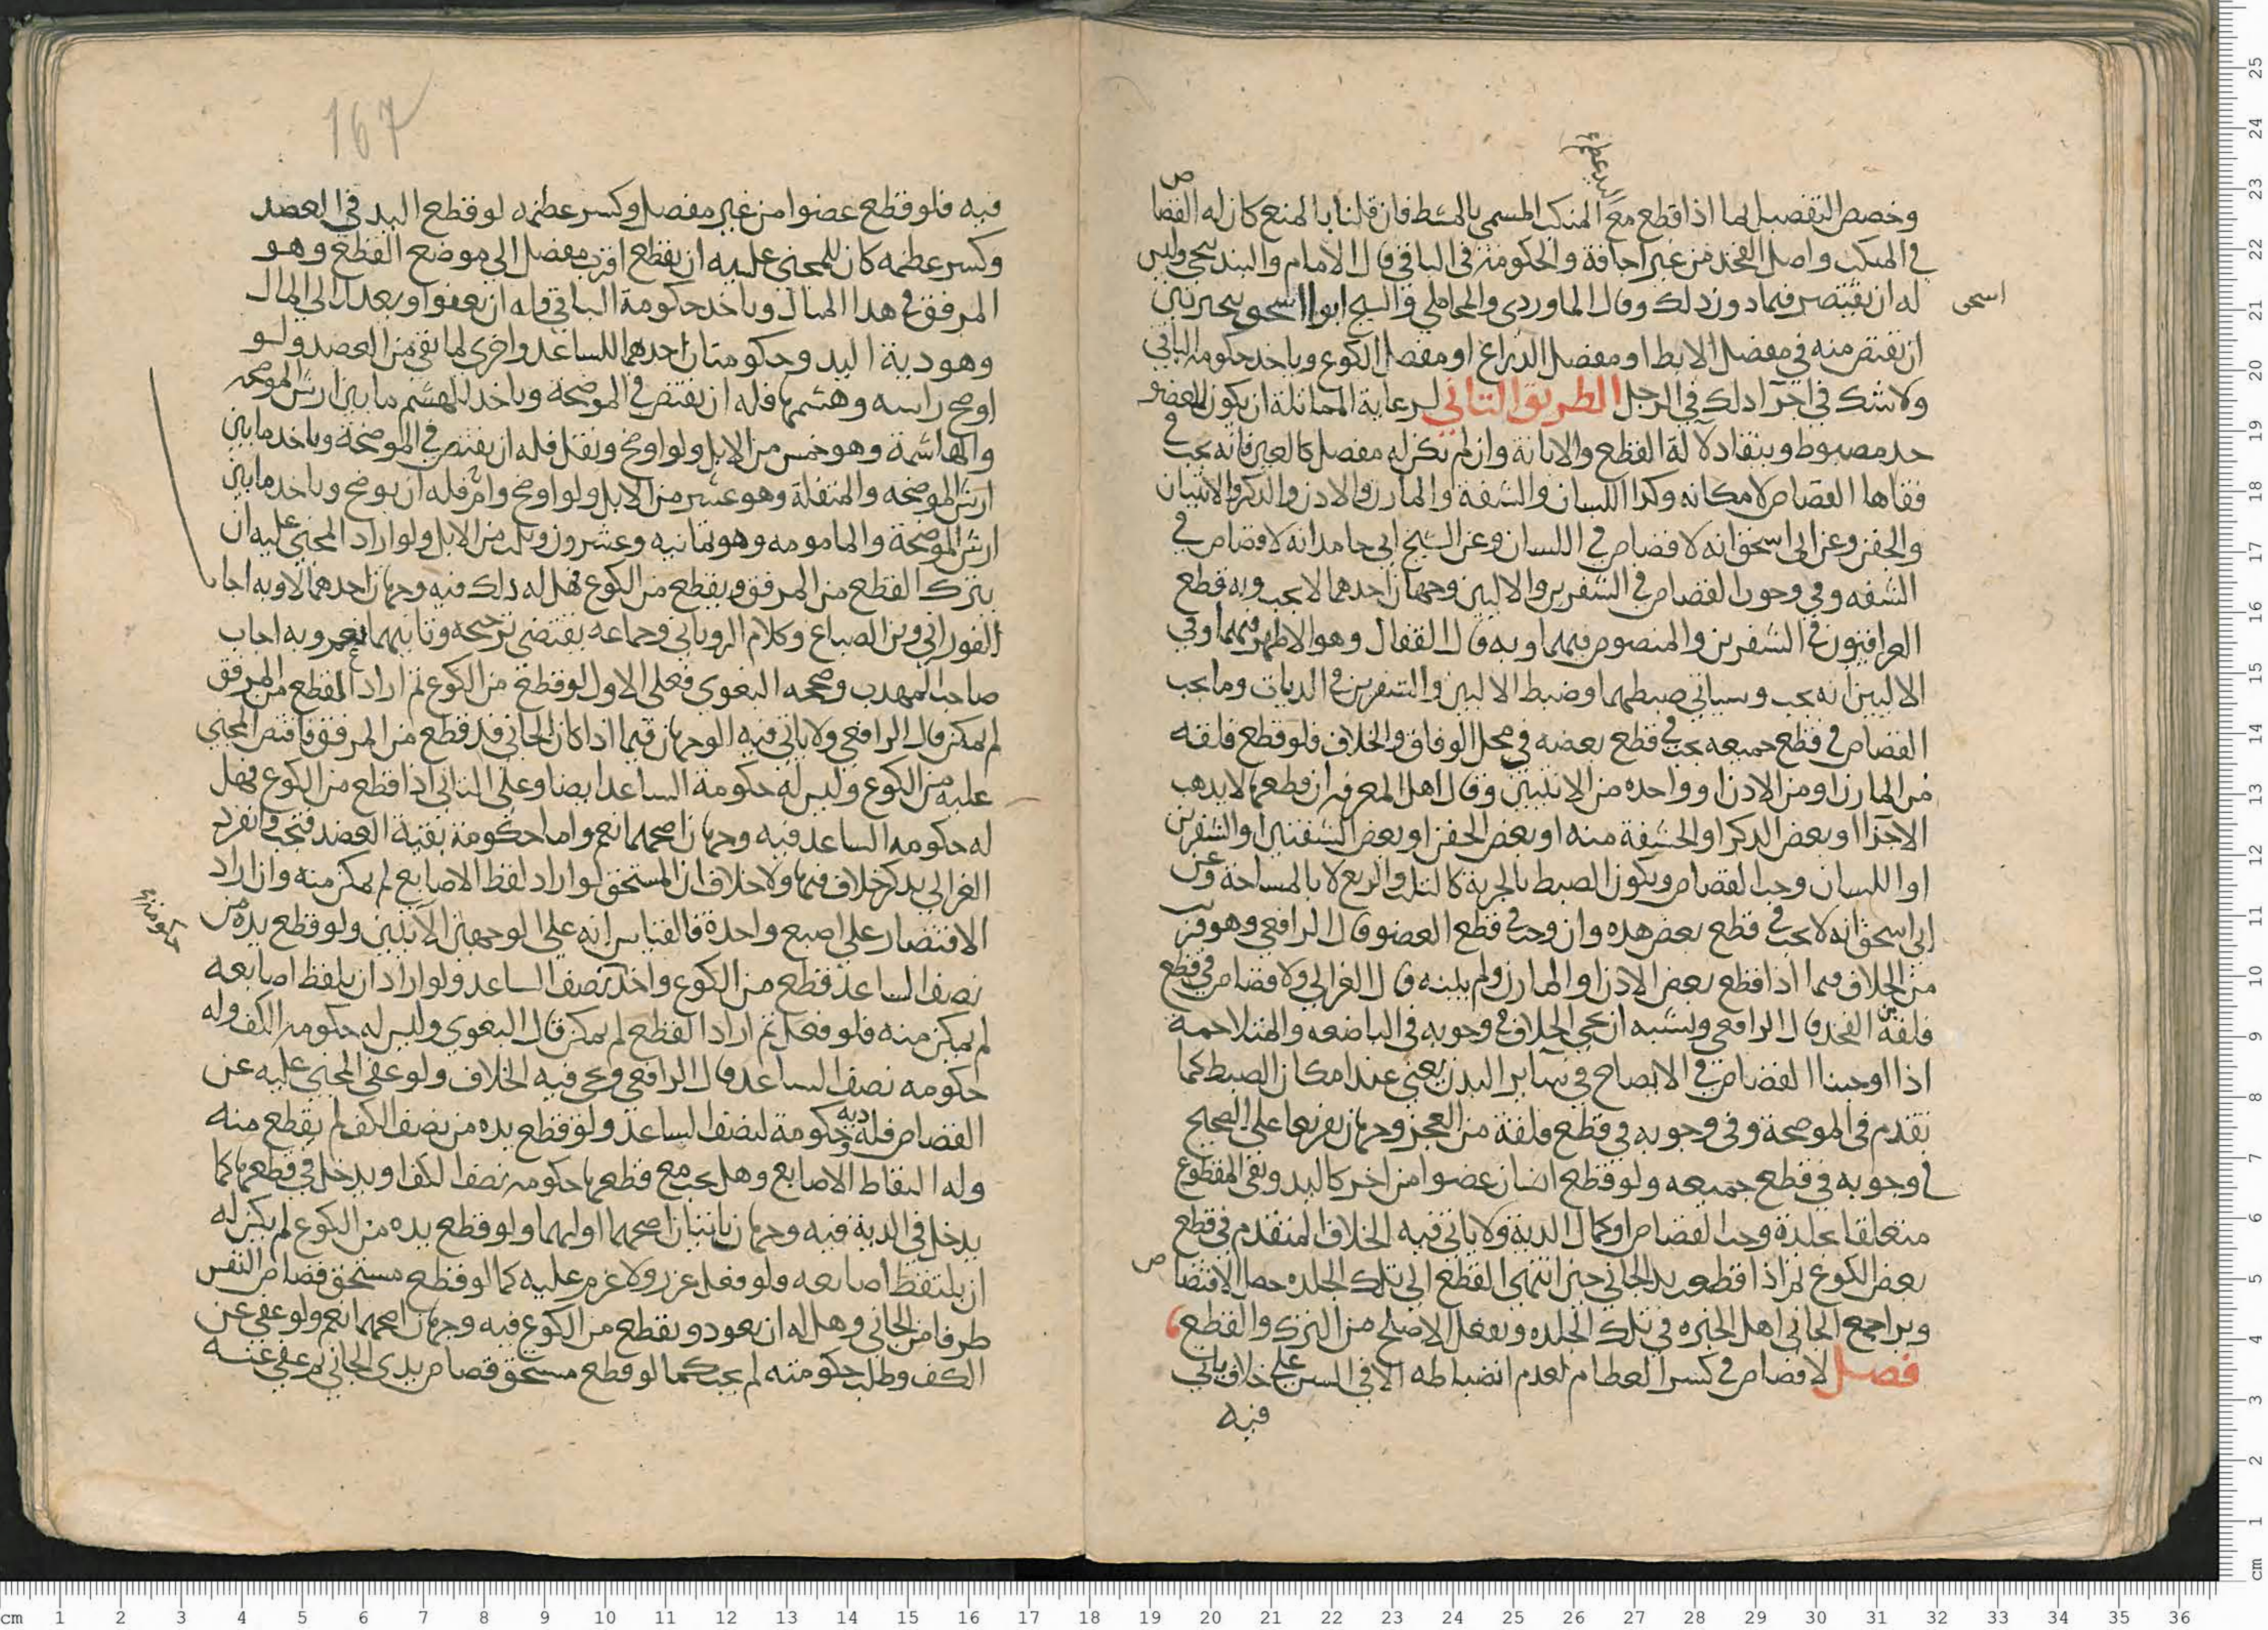 وخصص التفصيل بما اذا قطع مع المنكب المسمي بالمشط فان قلنا بالمنع كان له القصاص
في المنكب واصل الفخذ من غير اجافة والحكومة في الباقي قال الامام والبندنيجي وليس
له ان يقتص فيما دون ذلك وقال الماوردي والمحاملي والشيخ ابو اسحق يتخير بين
اسحق
ان يقتص منه في مفصل الابط او مفصل الذراع او مفصل الكوع وياخذ حكومة الباقي
ولا شك في اجرآ ذلك في الرجل الطريق الثاني لرعاية المماثلة ان يكون للعضو
حد مضبوط وينقاد لآلة القطع والابانة وان لم يكن له مفصل كالعين فانه يجب في
فقاها القصاص لامكانه وكذا اللسان والشفة والمارن والاذن والذكر والانثيان
والجفن وعن ابي اسحق انه لا قصاص في اللسان وعن الشيخ ابي حامد انه لا قصاص في
الشفه وفي وجوب القصاص في الشفرين والاليين وجهان احدهما لا يجب وبه قطع
العراقيون في الشفرين والمنصوص فيهما وبه قال القفال وهو الاظهر فيهما وفي
الاليين انه يجب وسياتي ضبطهما وضبط الاليين والشفرين في الديات وما يجب
القصاص في قطع جميعه يجب في قطع بعضه في محل الوفاق والخلاف فلو قطع فلقه
من المارن او من الاذن او واحده من الانثيين وقال اهل المعرفة ان قطعها لا يذهب
الاخرا او بعض الذكر او الحشفة منه او بعض الجفن او بعض الشفتين او الشفرين
او اللسان وجب القصاص ويكون الضبط بالجزية كالثلث والربع لا بالمساحة وعن
ابي اسحق انه لا يجب في قطع بعض هذه وان وجب في قطع العضو قال الرافعي وهو قريب
من الخلاف فيما اذا قطع بعض الاذن او المارن ولم يبنه قال الغزالي ولا قصاص في قطع
فلقة من الفخذ قال الرافعي ويشبه ان يجي الخلاف في وجوبه في الباضعه والمتلاحمة
اذا اوجبنا القصاص في الايضاح في سآير البدن يعني عند امكان الضبط كما
تقدم في الموضحة وفي وجوبه في قطع فلقة من العجز وجهان تفريعا على الصحيح
في وجوبه في قطع جميعه ولو قطع انسان عضوا من اخر كاليد وبقي المقطوع
متعلقا بجلدة وجب القصاص او كمال الدية ولا ياتي فيه الخلاف المتقدم في قطع
بعض الكوع ثم اذا قطع يد الجاني حتى انتهى القطع الى تلك الجلده حصل الاقتصاص
ويراجع الجاني اهل الخبره في تلك الجلده ويفعل الاصلح من الترك والقطع
فصل لا قصاص في كسر العظام لعدم انضباطه الا في السن على خلاف ياتي
فيه
167
فيه فلو قطع عضوا من غير مفصل وكسر عظمه لو قطع اليد في العضد
وكسر عظمه كان للمجني عليه ان يقطع اقرب مفصل الى موضع القطع وهو
المرفق في هذا المثال وياخذ حكومة الباقي وله ان يعفوا ويعدل الى المال
وهو دية اليد وحكومتان احدهما للساعد واخرى لما بقي من العضد ولو
اوضح راسه وهشمها فله ان يقتص في الموضحة وياخذ للهشم ما بين ارش الموضحه
والهاشمة وهو خمس من الابل ولو اوضح ونقل فله ان يقتص في الموضحة وياخذ ما بين
ارش الموضحه والمنقلة وهو عشر من الابل ولو اوضح وام فله ان يوضح وياخذ ما بين
ارش الموضحة والمامومه وهو ثمانيه وعشرون وثلث من الابل ولو اراد المجني عليه ان
يترك القطع من المرفق ويقطع من الكوع فهل له ذلك فيه وجهان احدهما لا وبه اجاب
الفوراني وبن الصباغ وكلام الروياني وجماعه يقتضي ترجيحه وثانيهما نعم وبه اجاب
صاحب المهذب وصححه البغوي فعلى الاول لو قطع من الكوع ثم اراد القطع من المرفق
لم يمكن قال الرافعي ولا ياتي فيه الوجهان فيما اذا كان الجاني قد قطع من المرفق فاقتص المجني
عليه من الكوع وليس له حكومة الساعد ايضا وعلى الثاني اذا قطع من الكوع فهل
له حكومه الساعد فيه وجهان اصحهما نعم واما حكومة بقية العضد فتجب وانفرد
الغزالي بذكر خلاف فيها ولا خلاف ان المستحق لو اراد لقط الاصابع لم يمكن منه وان اراد
الاقتصار على اصبع واحدة فالقياس انه على الوجهين الآتيين ولو قطع يده من
نصف الساعد قطع من الكوع واخذ نصف الساعد ولو اراد ان يلقط اصابعه
لم يمكن منه فلو فعل ثم اراد القطع لم يمكن قال البغوي وليس له حكومه الكف وله
حكومه نصف الساعد قال الرافعي وجي فيه الخلاف ولو عفى المجني عليه عن
القصاص فله دية وحكومة لنصف الساعد ولو قطع يده من نصف الكف لم يقطع منه
وله التقاط الاصابع وهل يجب مع قطعها حكومه نصف الكف او يدخل في قطعها كما
يدخل في الدية فيه وجهان ياتيان اصحهما اولهما ولو قطع يده من الكوع لم يكن له
ان يلتقط اصابعه ولو فعل عزر ولا غرم عليه كما لو قطع مستحق قصاص النفس
طرفا من الجاني وهل له ان يعود ويقطع من الكوع فيه وجهان اصحهما نعم ولو عفى عن
الكف وطلب حكومته لم يجب كما لو قطع مستحق قصاص يدي الجاني ثم عفى عنه